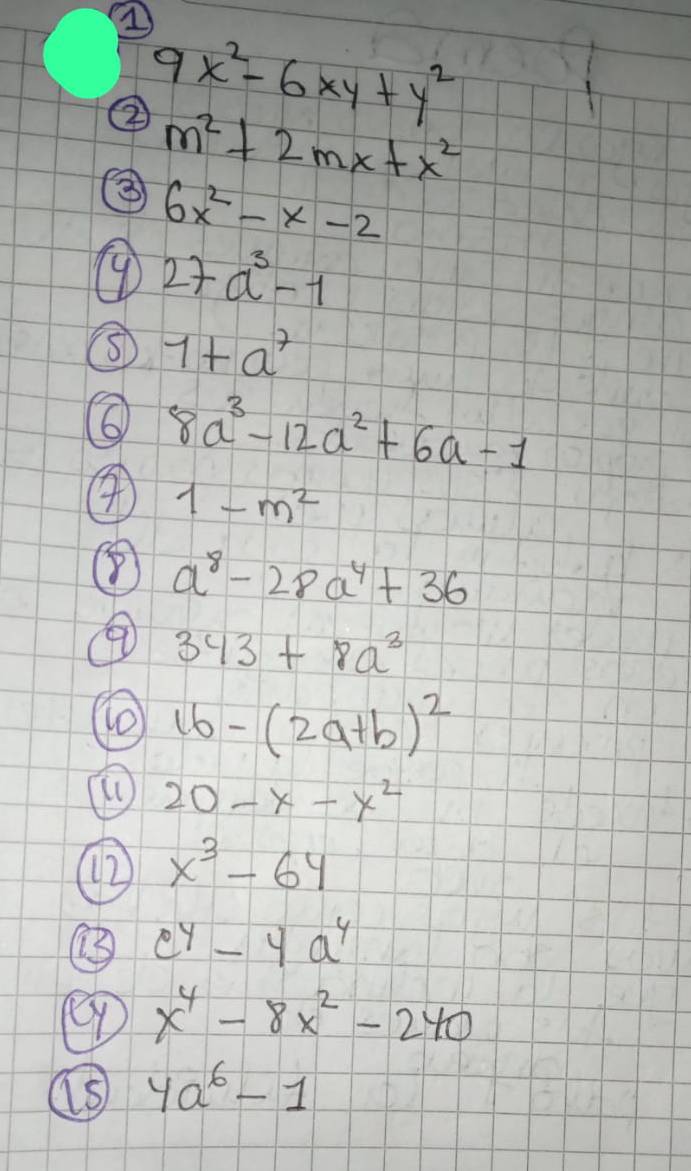 ① 9x² - 6xy + y²
② m² + 2mx + x²
③ 6x² - x - 2
④ 27a³ - 1
⑤ 1 + a⁷
⑥ 8a³ - 12a² + 6a - 1
⑦ 1 - m²
⑧ a⁸ - 28a⁴ + 36
⑨ 343 + 8a³
⑩ 16 - (2a+b)²
⑪ 20 - x - x²
⑫ x³ - 64
⑬ c⁴ - 4a⁴
⑭ x⁴ - 8x² - 240
⑮ 4a⁶ - 1